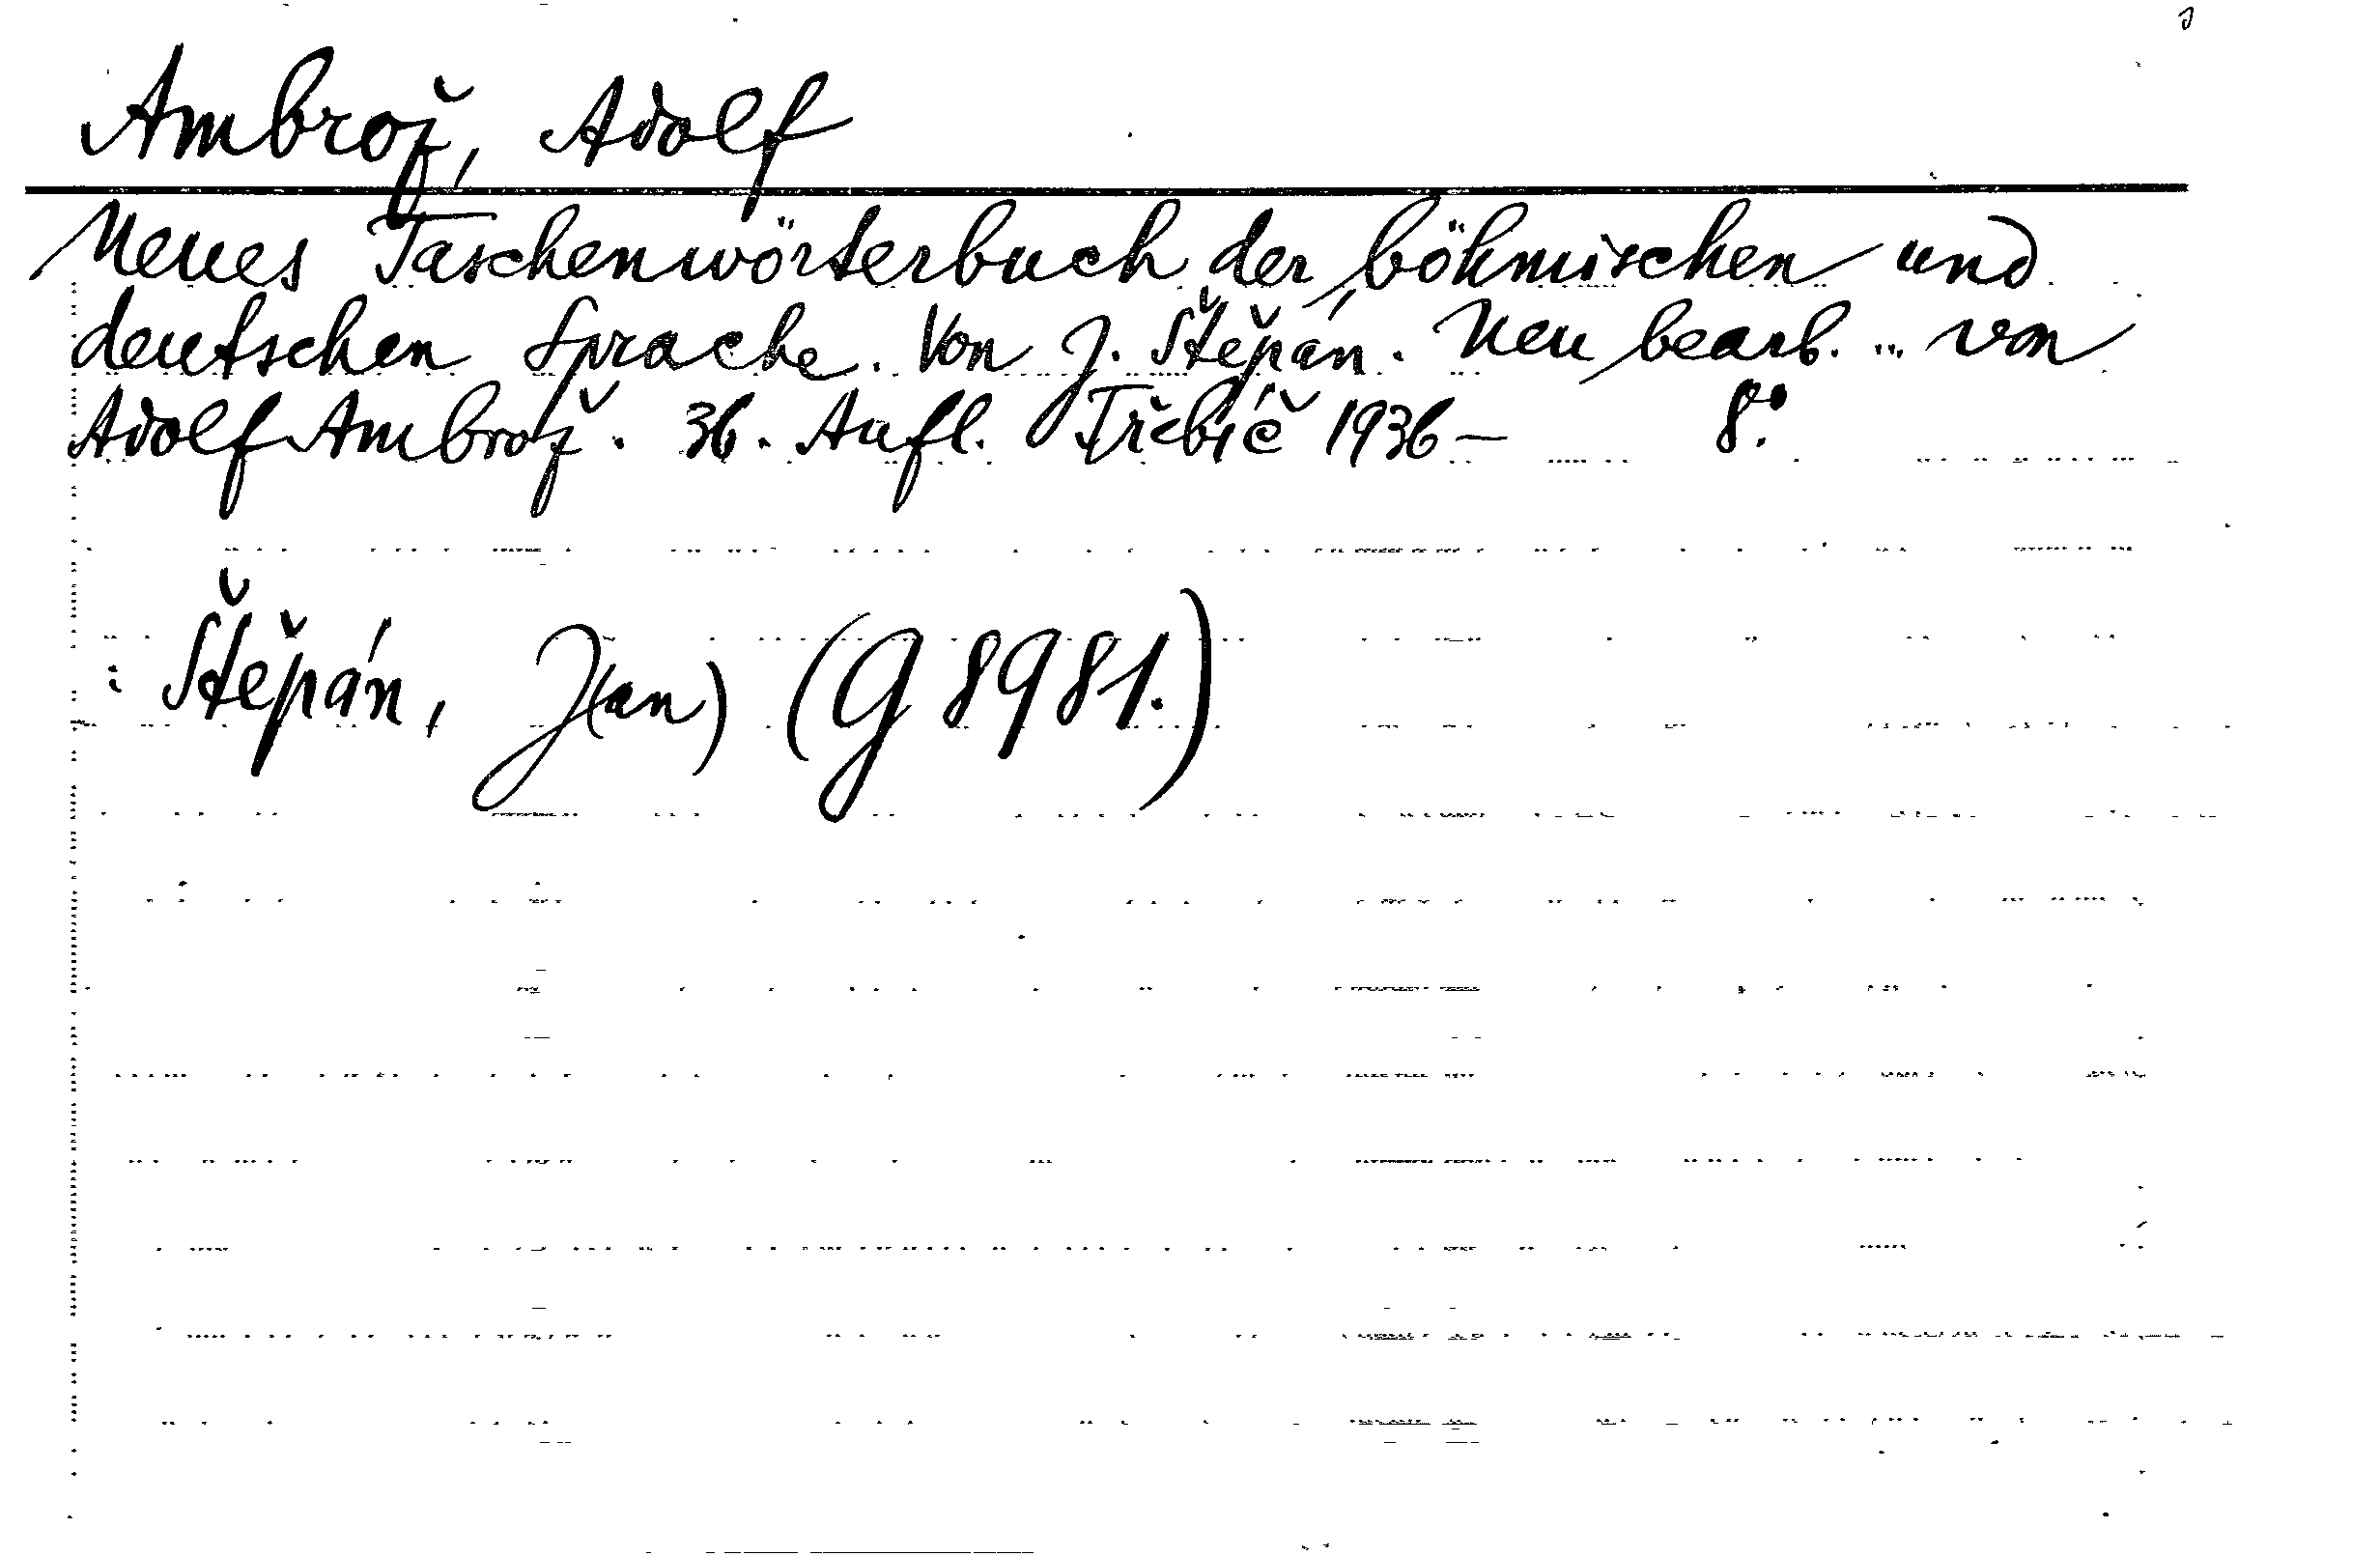 Ambrož, Adolf
Neues Taschenwörterbuch der böhmischen und
deutschen Sprache. Von J. Štěpán. Neu bearb. ... von
Adolf Ambrož. 36. Aufl. Třebíč 1936– 8°.
: Štěpán, J(an) (G 8981.)